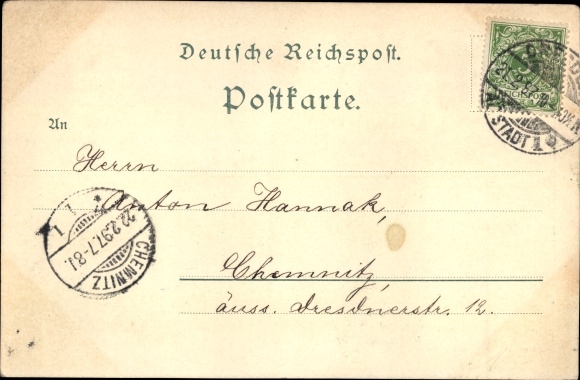 Deutsche Reichspost.
Postkarte.
An
Herrn
Anton Hannak,
Chemnitz,
äuss. Dresdnerstr. 12.
22.2.97. 7-8.
CHEMNITZ
1
STADT 19